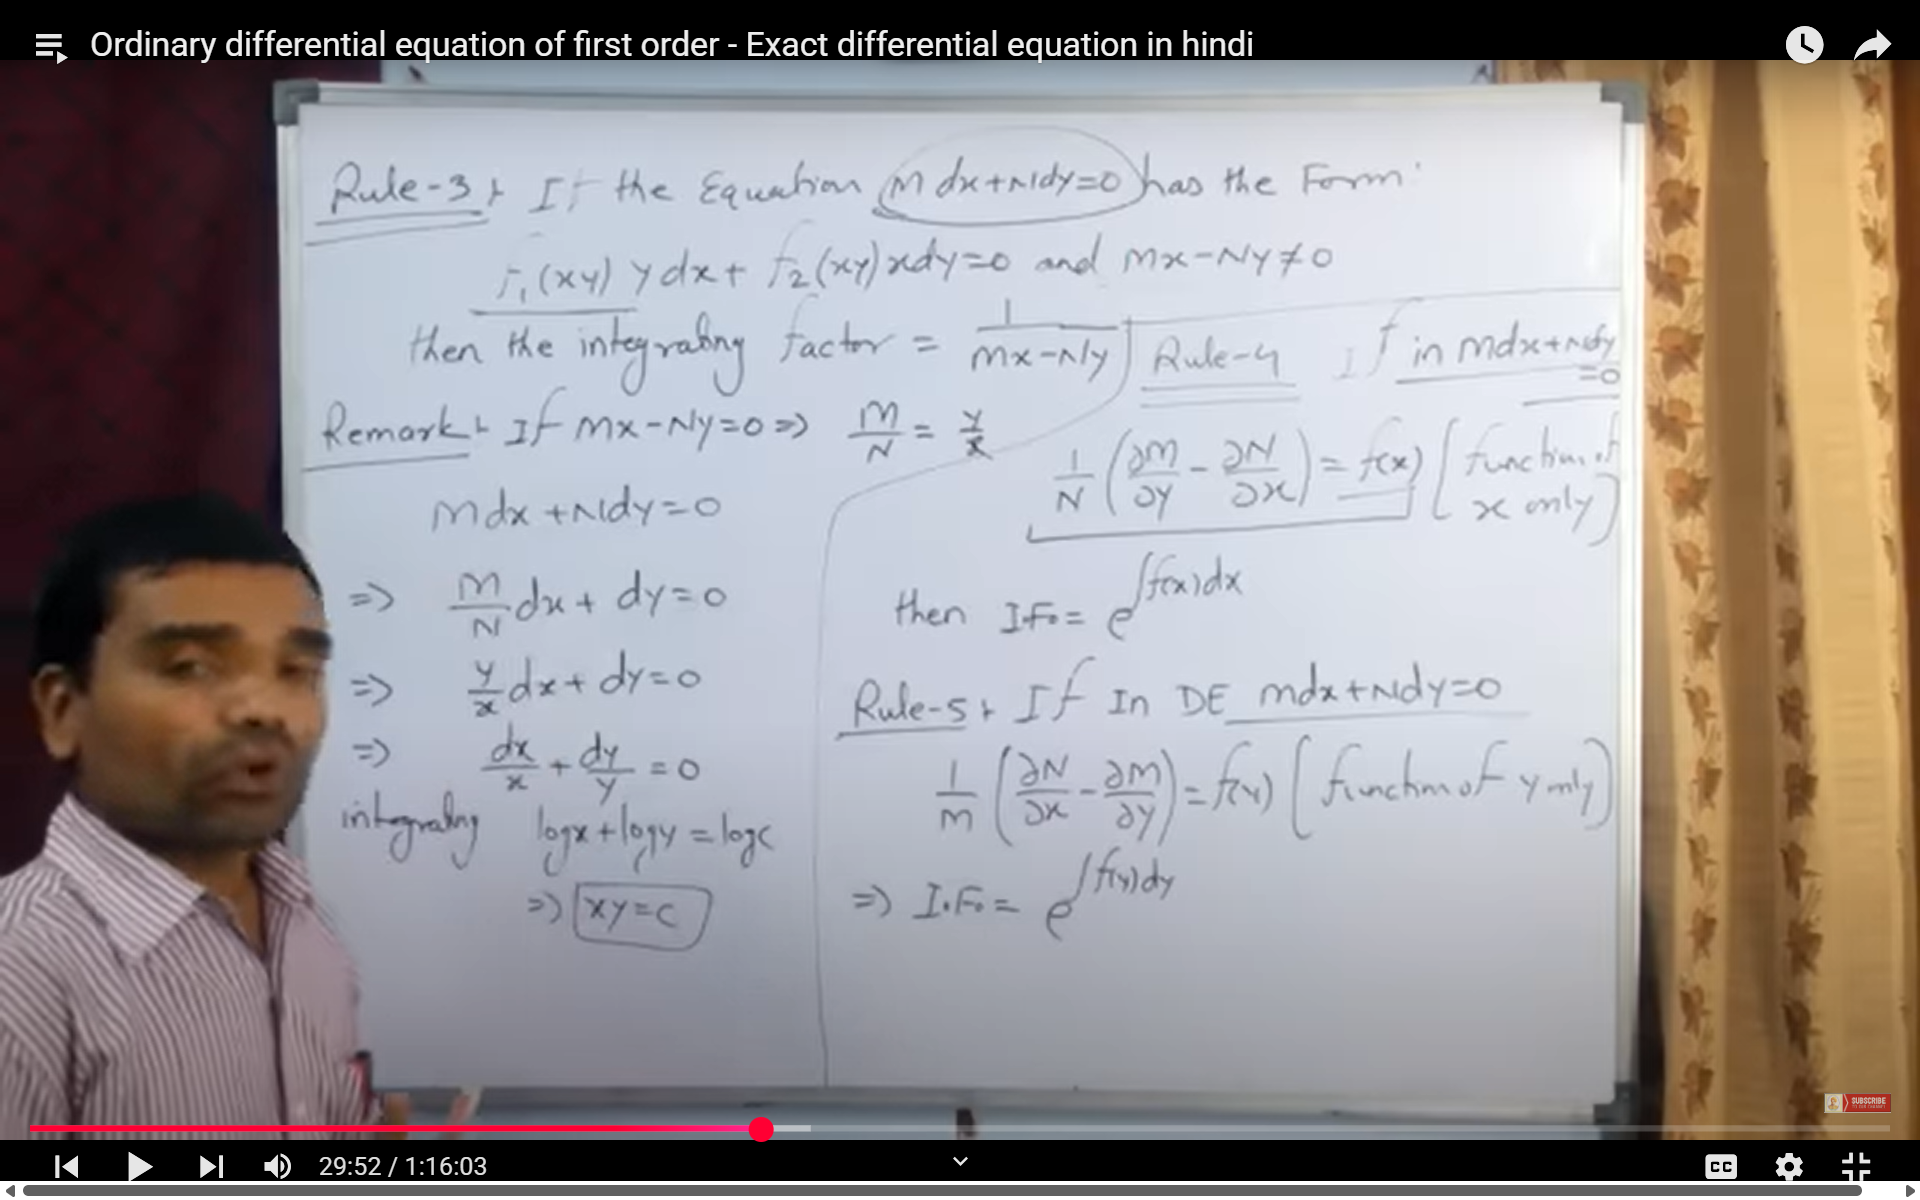 Ordinary differential equation of first order - Exact differential equation in hindi
Rule-3 : If the Equation Mdx+Ndy=0 has the Form
f₁(xy) ydx + f₂(xy) xdy=0 and Mx-Ny≠0
then the integrating factor = 1/(Mx-Ny)
Remark : If Mx-Ny=0 => M/N = y/x
Mdx+Ndy=0
=> M/N dx + dy=0
=> y/x dx + dy=0
=> dx/x + dy/y = 0
integrating logx+logy=logc
=> xy=c
Rule-4 If in Mdx+Ndy=0
1/N (∂M/∂y - ∂N/∂x) = f(x) [function of x only]
then I.F.= e^∫f(x)dx
Rule-5 : If In DE Mdx+Ndy=0
1/M (∂N/∂x - ∂M/∂y) = f(y) [function of y only]
=> I.F. = e^∫f(y)dy
SUBSCRIBE
29:52 / 1:16:03
CC